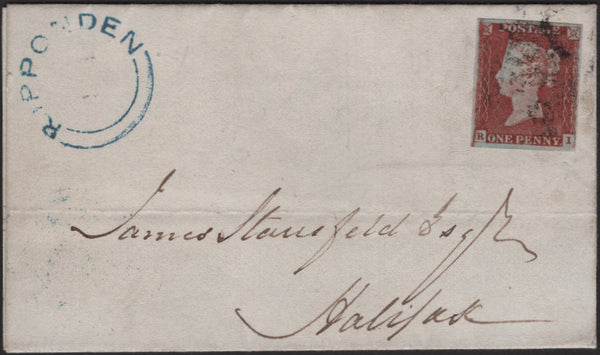 RIPPONDEN
POSTAGE
R ONE PENNY I
James Stansfeld Esqr
Halifax